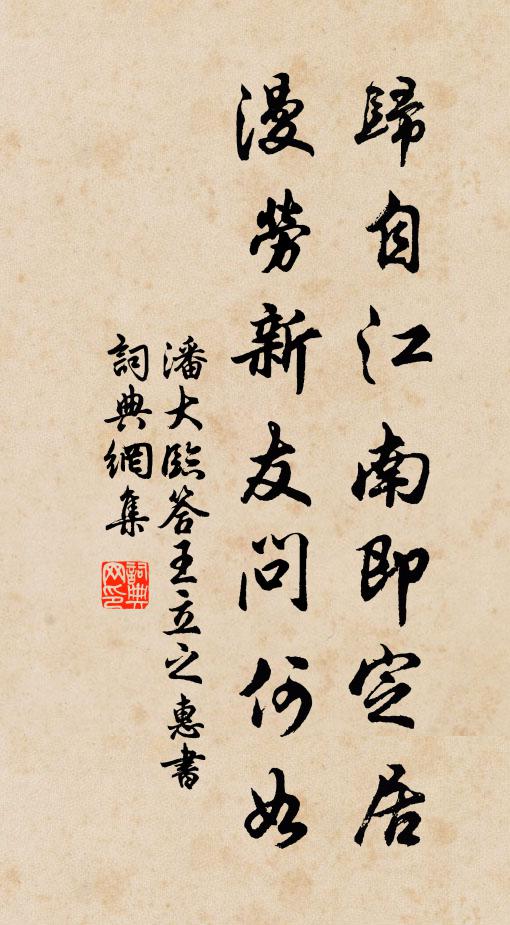 歸自江南即定居
漫勞新友問何如
潘大臨答王立之惠書
詞典網集
詞典网印